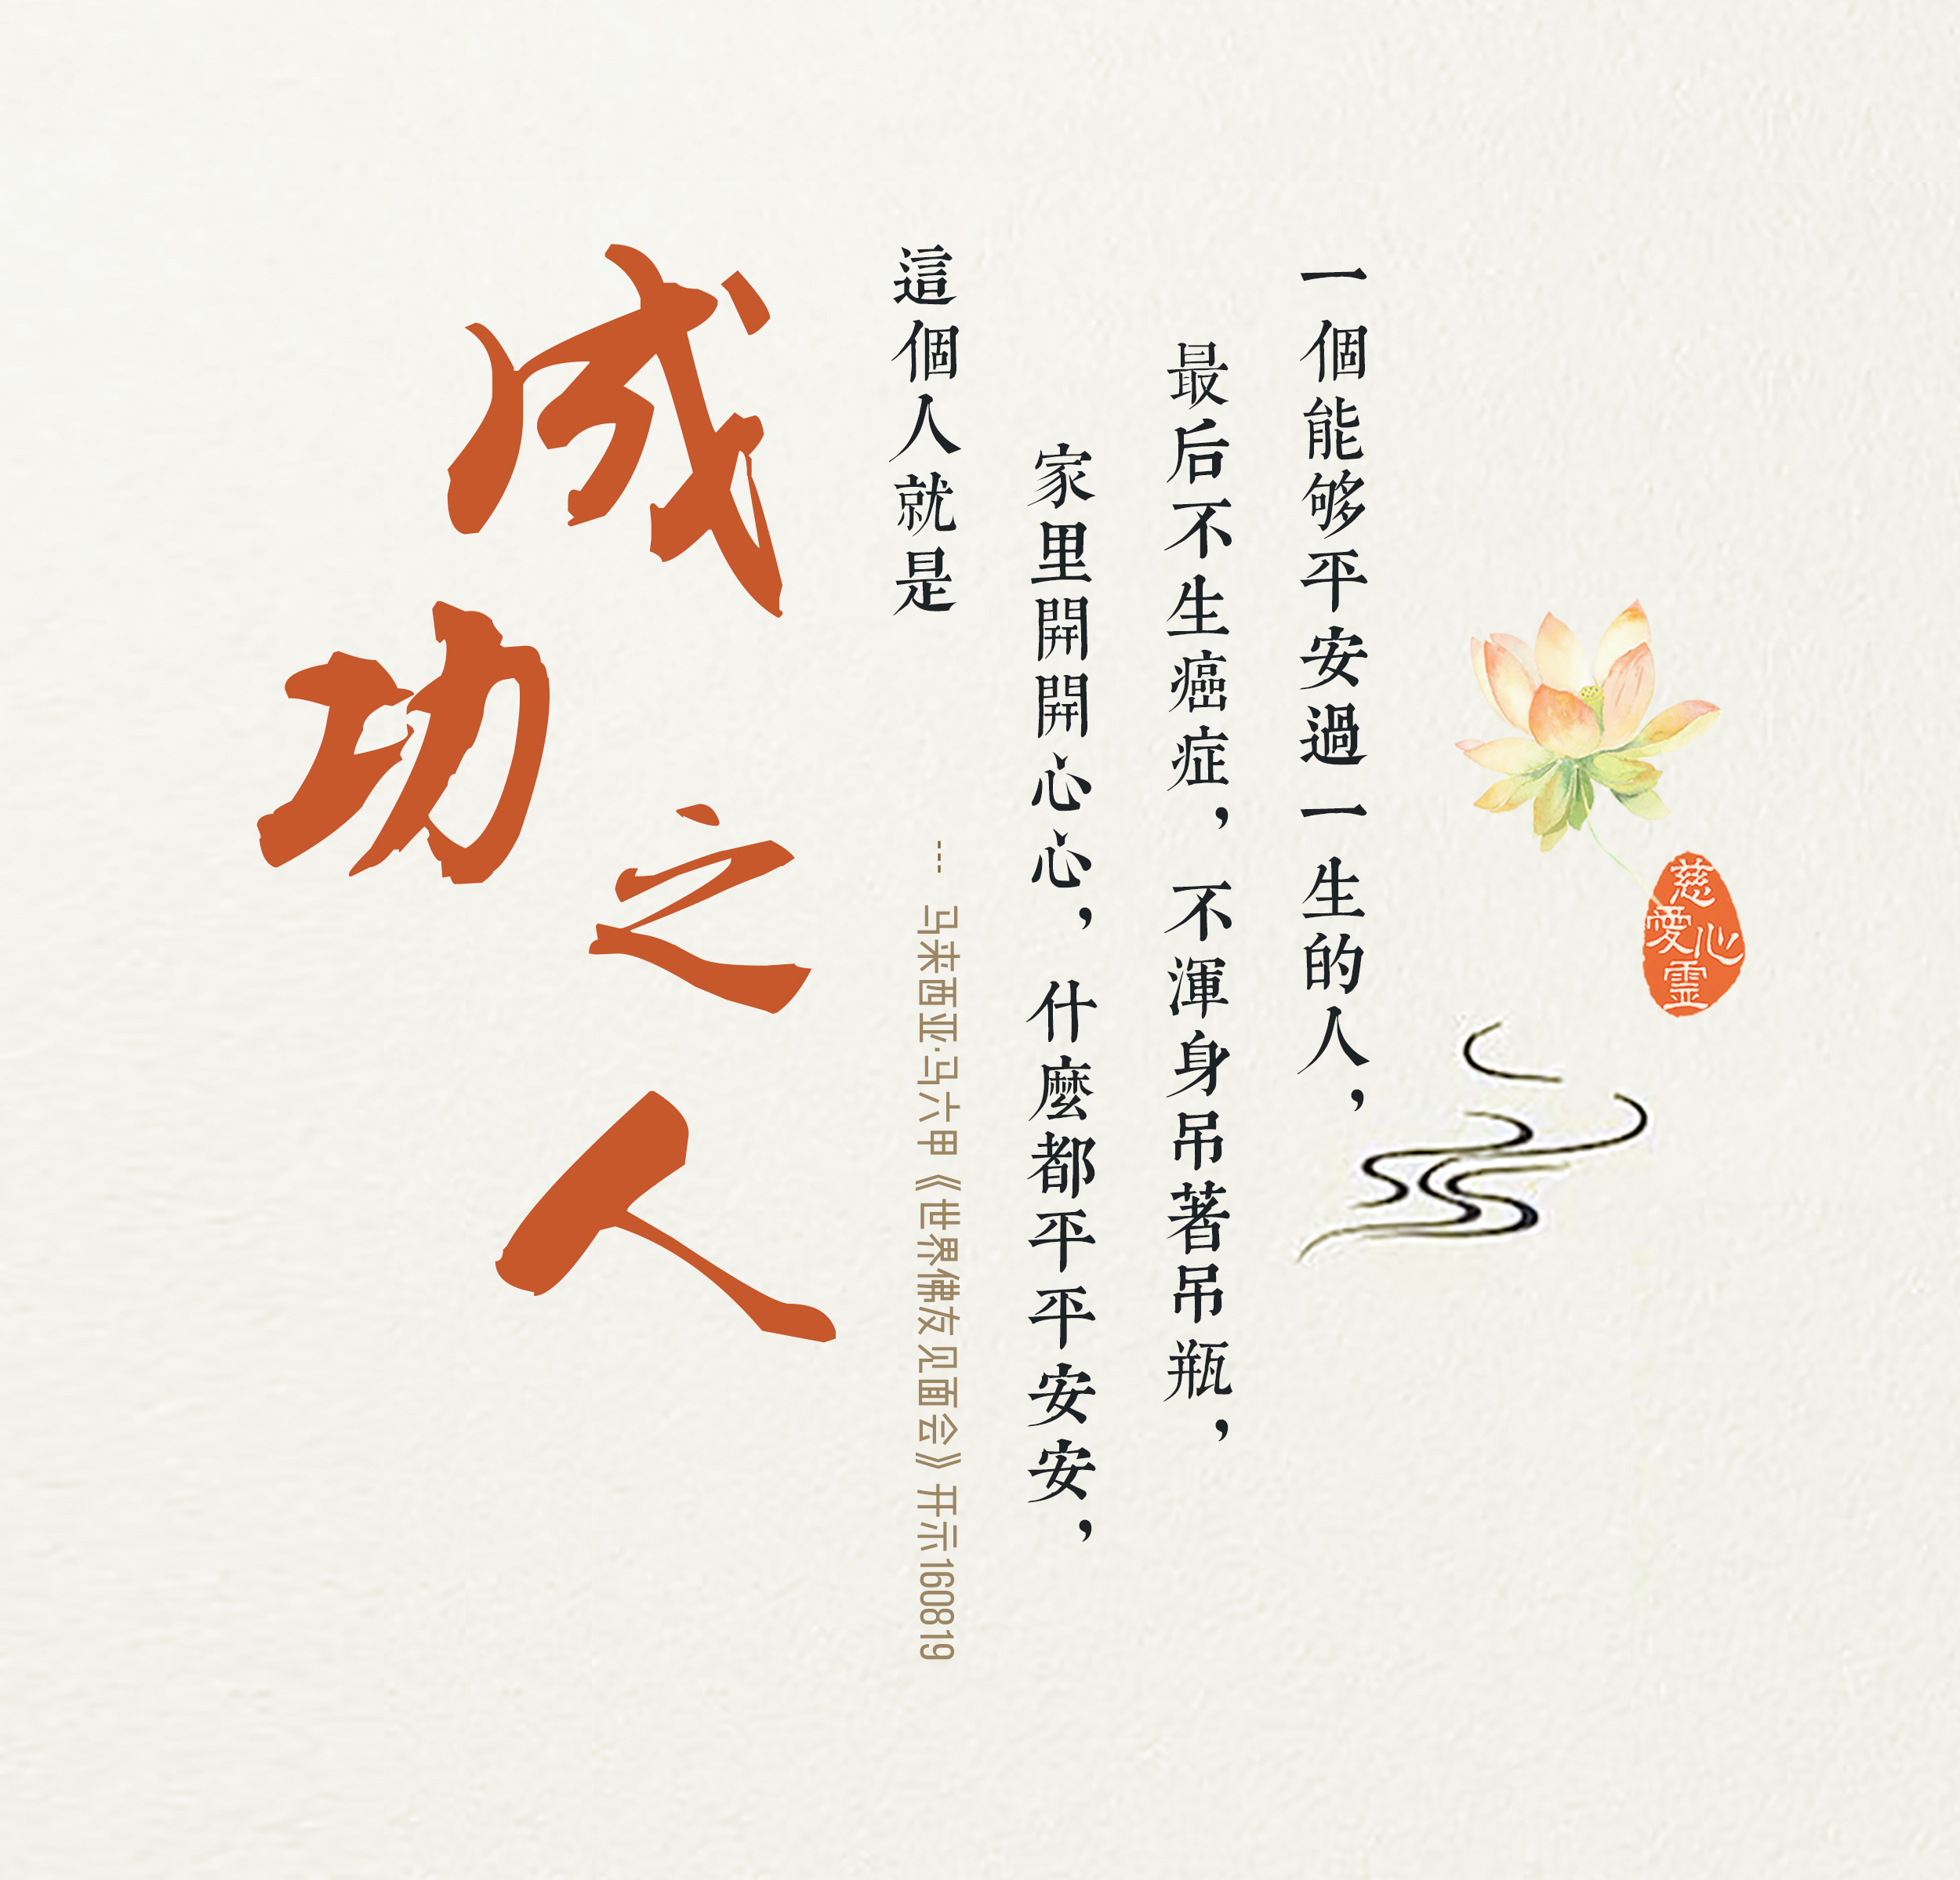 慈
心
愛
霊
一個能够平安過一生的人，
最后不生癌症，不渾身吊著吊瓶，
家里開開心心，什麼都平平安安，
這個人就是
--- 马来西亚·马六甲《世界佛友见面会》开示160819
成功之人